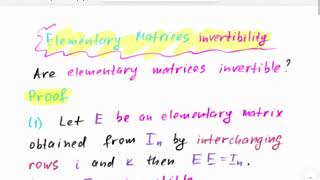 Elementary Matrices invertibility
Are elementary matrices invertible?
Proof
(1) Let E be an elementary matrix
obtained from In by interchanging
rows i and k then E E = In.